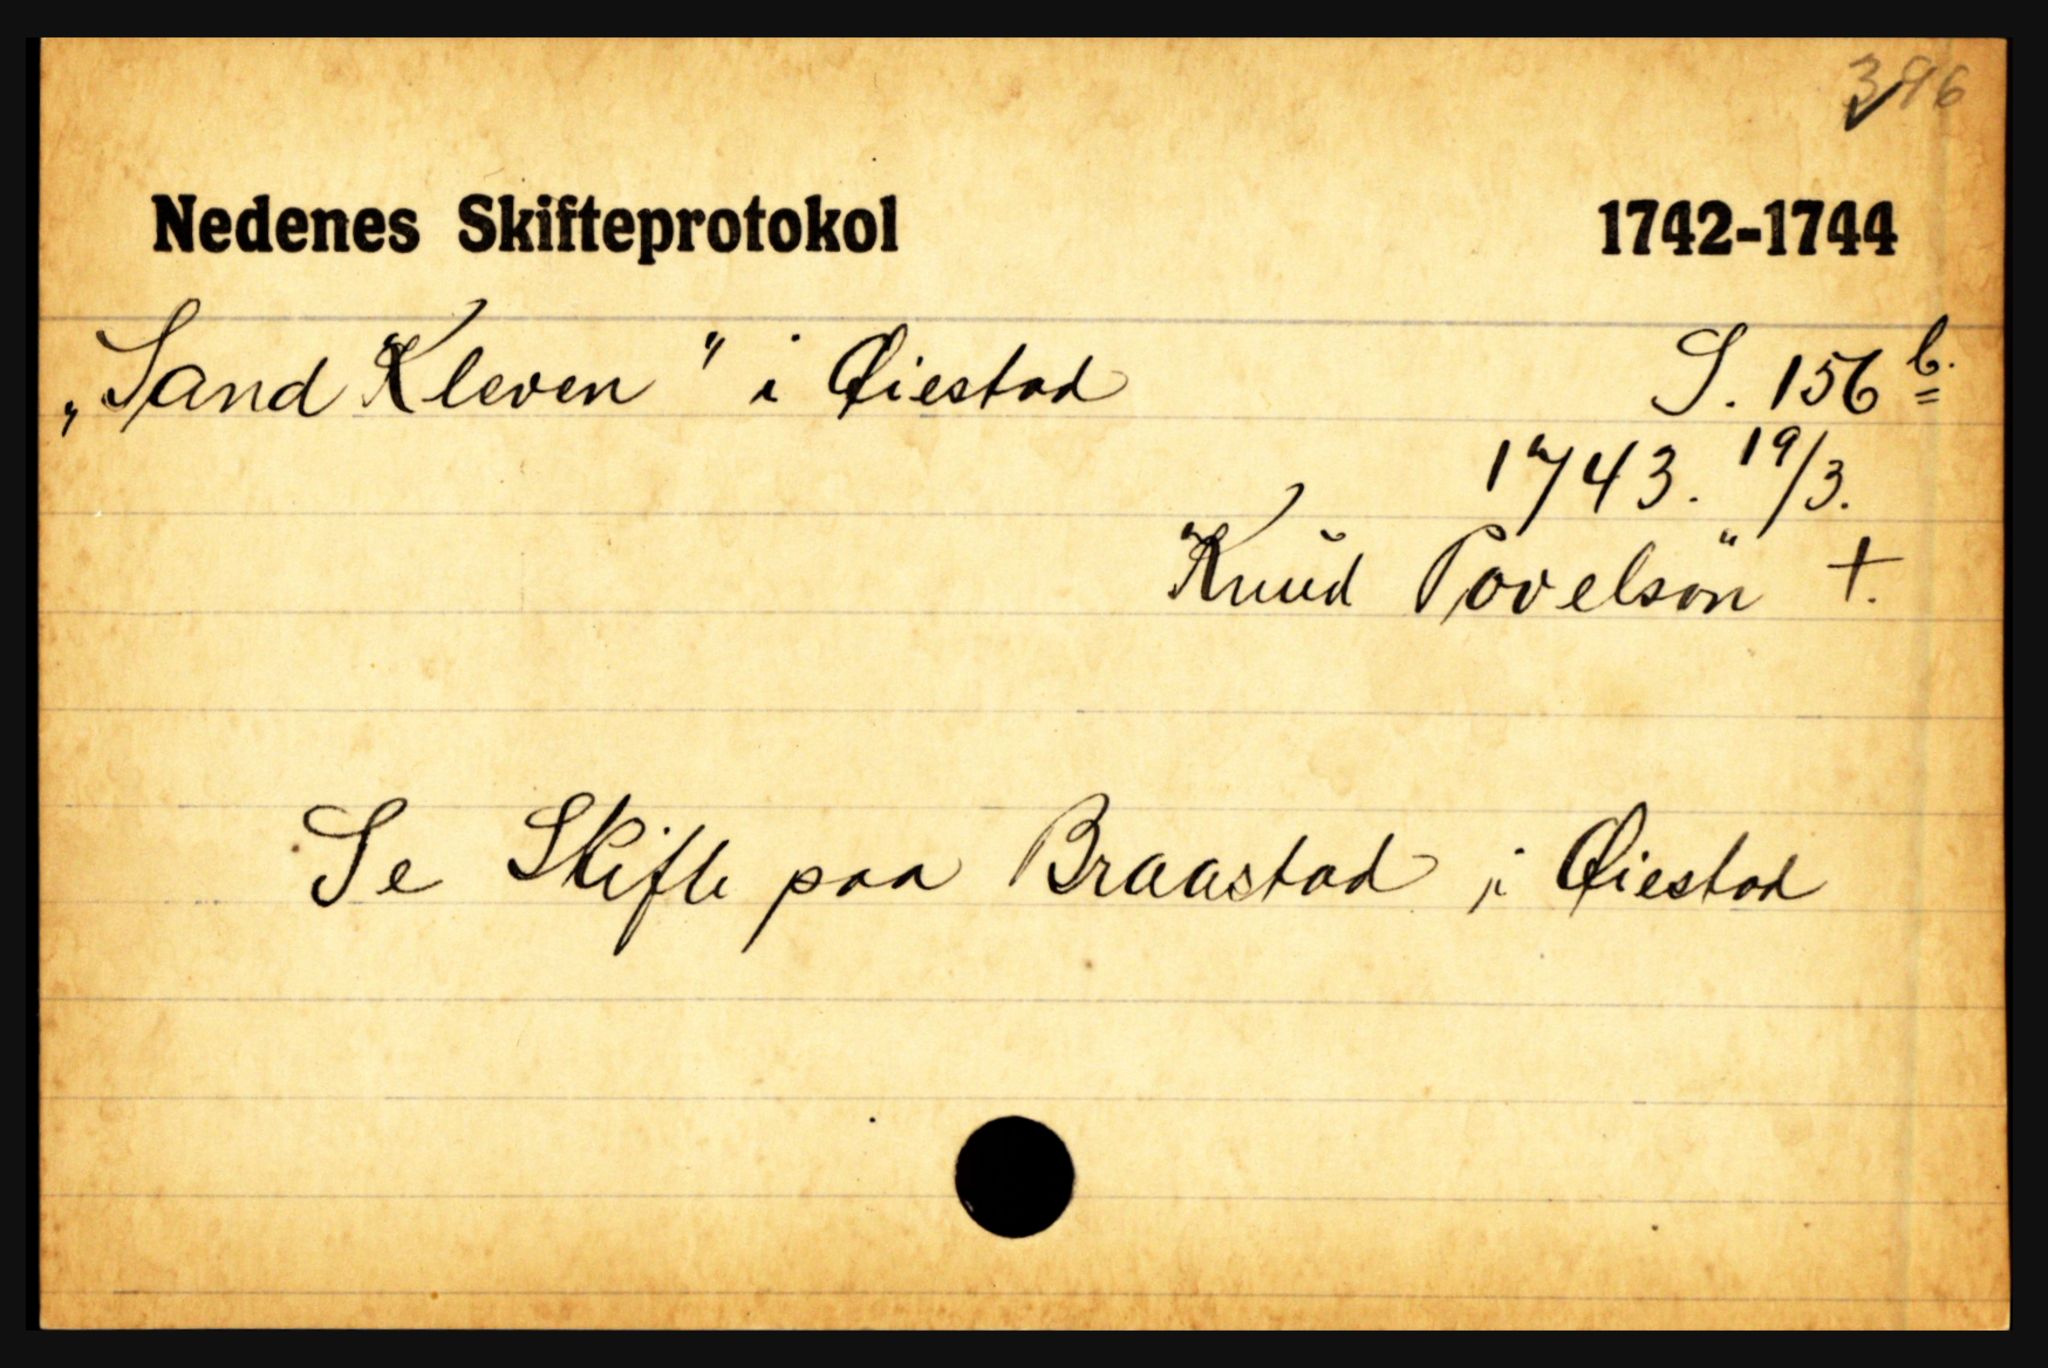 396
Nedenes Skifteprotokol 1742-1744
„Sand Kleven" i Øiestad S. 156 b.
1743. 19/3.
Knud Povelsön †.
Se Skifte paa Braastad i Øiestad